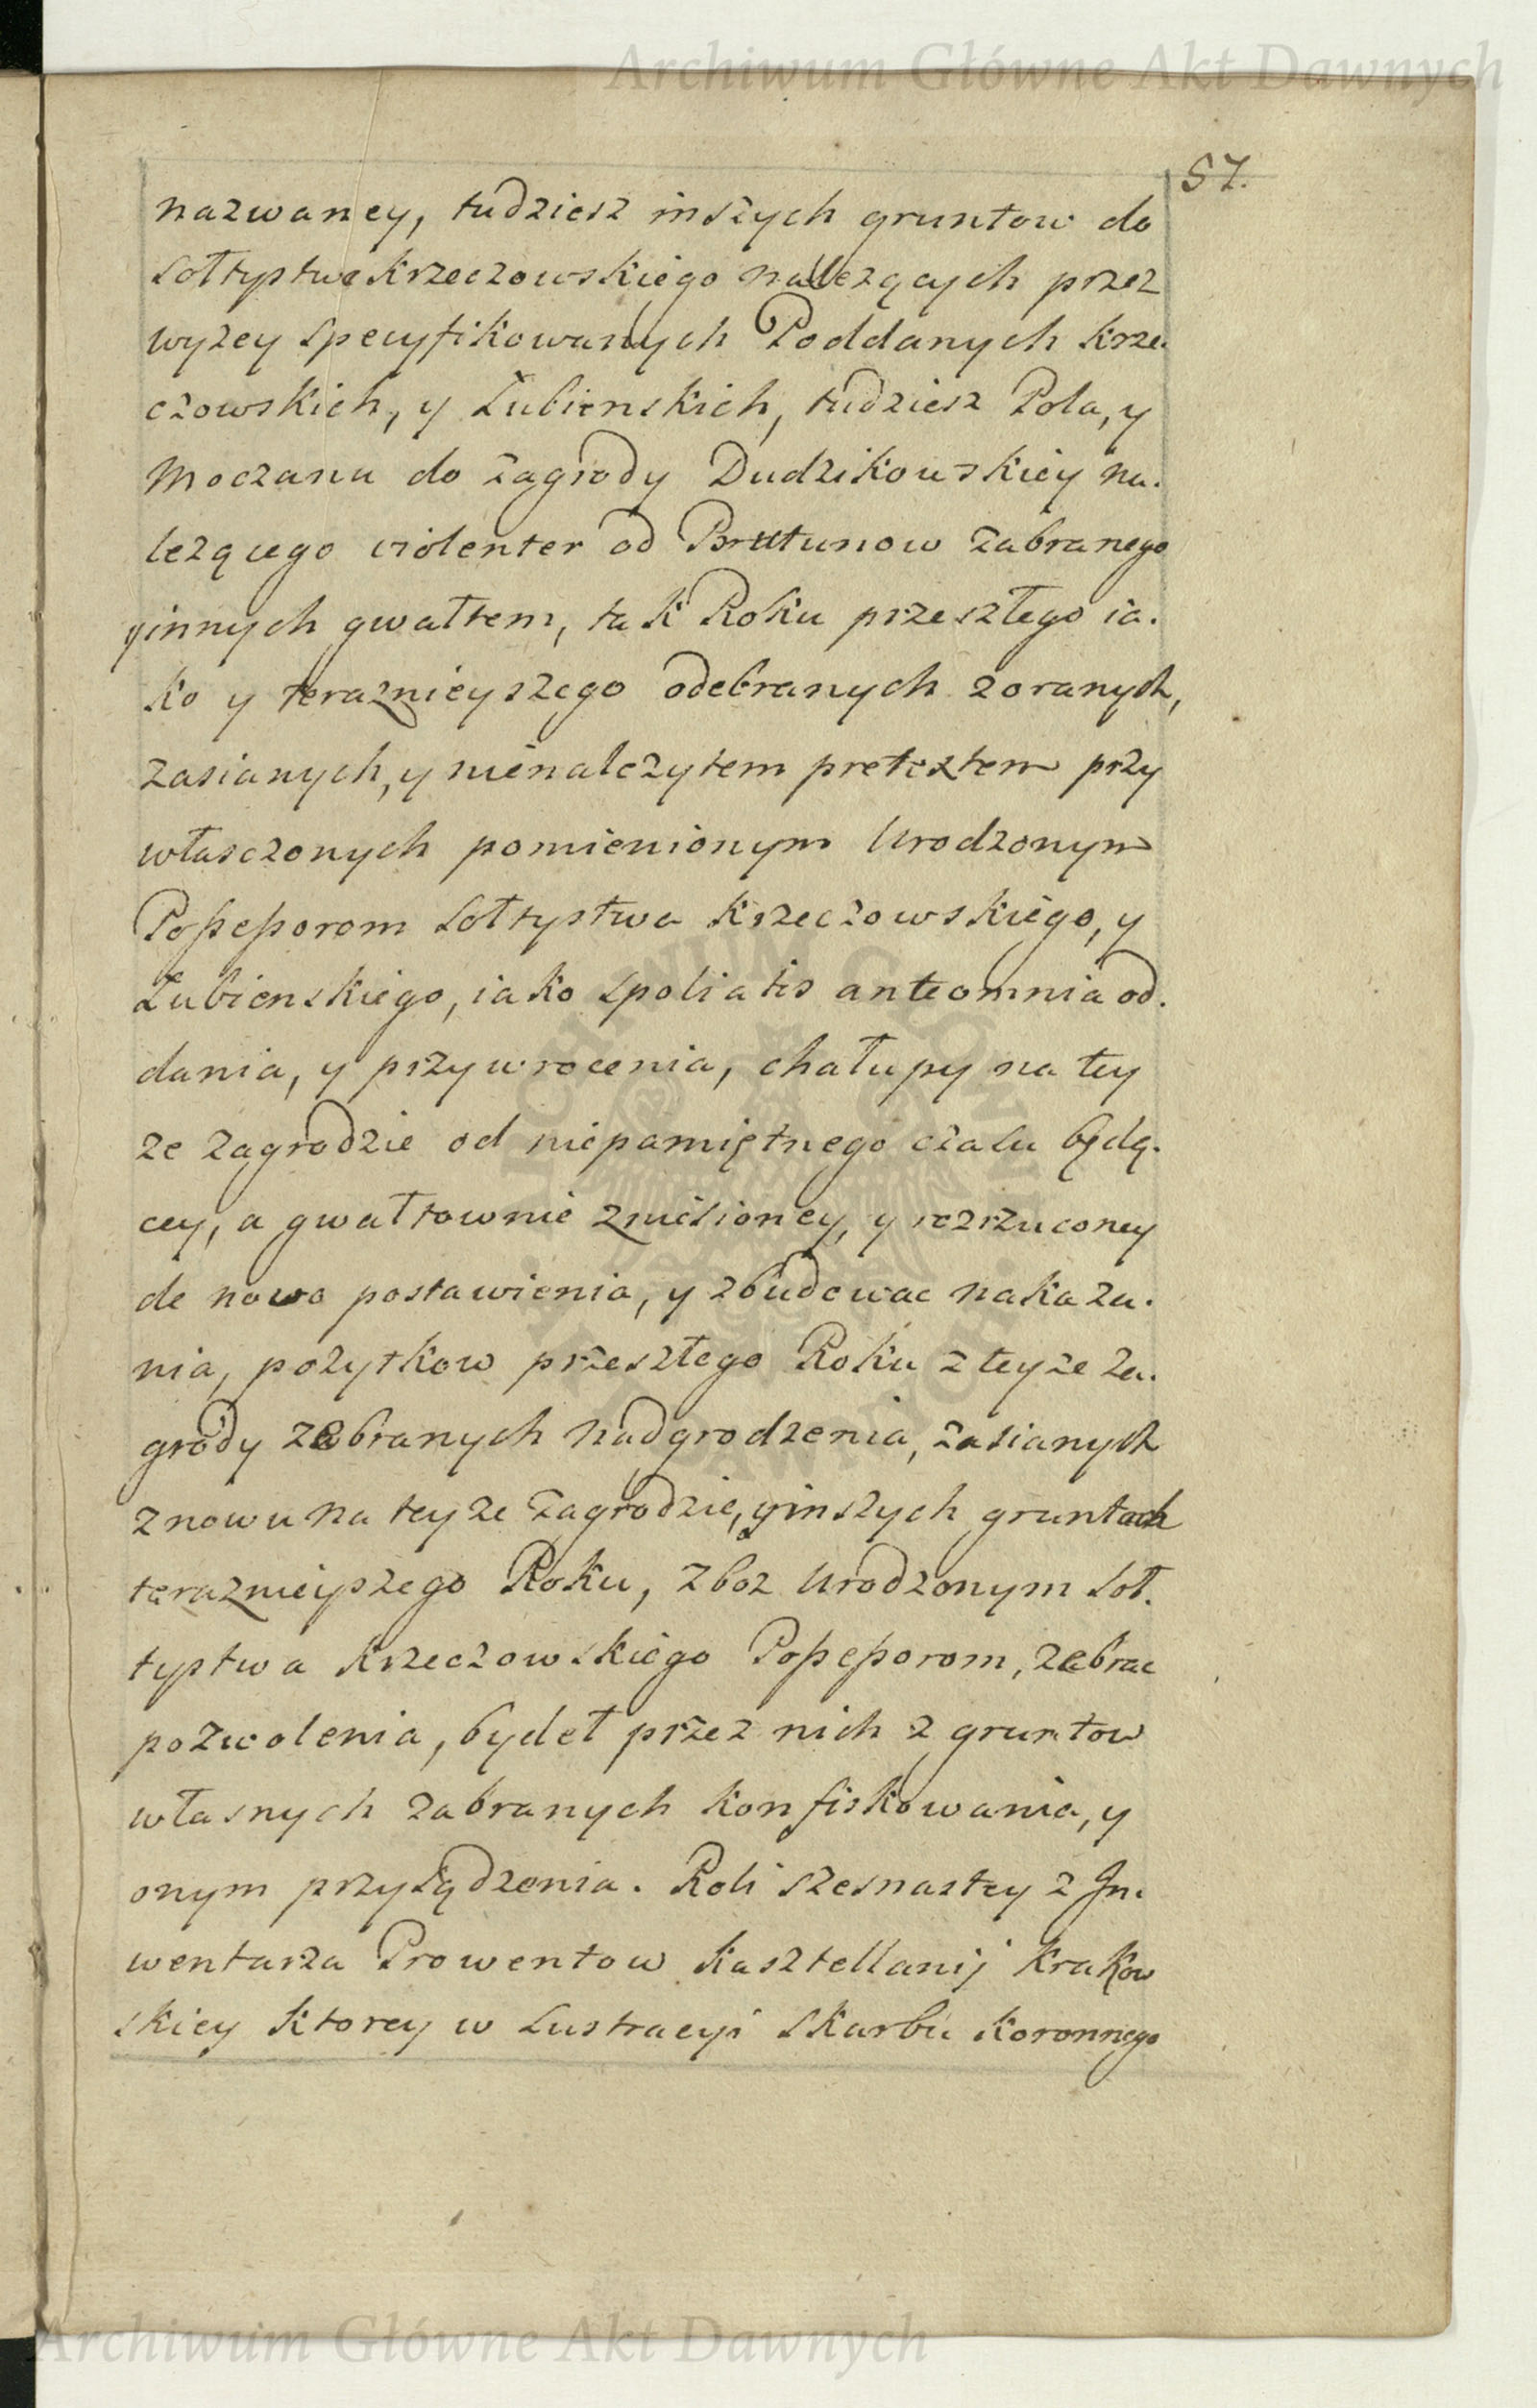 Archiwum Główne Akt Dawnych
57.
nazwaney, tudziesz inszych gruntow do
Sołtystwa Krzeczowskiego nalezących przez
wyzey specyfikowanych Poddanych Krze-
czowskich, y Łubienskich, tudziesz Pola, y
Moczaru do zagrody Dudzikowskiey na-
lezącego violenter od Brutunow zabranego
yinnych gwałtem, tak Roku przeszłego ia-
ko y teraznieyszego odebranych zoranych,
zasianych, y nienalezytem pretextem przy
własczonych pomienionym Urodzonym
Possessorom Sołtystwa Krzeczowskiego, y
Łubienskiego, iako spoliatis anteomnia od-
dania, y przywrocenia, chałupy na tey
ze zagrodzie od niepamiętnego czasu będą-
cey, a gwałtownie zniesioney, y rozrzuconey
de novo postawienia, y zbudowac nakaza-
nia, pozytkow przeszłego Roku z teyze za-
grody zabranych nadgrodzenia, zasianych
znowu na teyze zagrodzie, yinszych gruntach
teraznieyszego Roku, zboz Urodzonym Soł-
tystwa Krzeczowskiego Possessorom, zebrac
pozwolenia, bydeł przez nich z gruntow
własnych zabranych konfiskowania, y
onym przysądzenia. Roli szesnastey z In-
wentarza Prowentow Kasztellanij Krakow
skiey ktorey w Lustracyi Skarbu Koronnego
Archiwum Główne Akt Dawnych